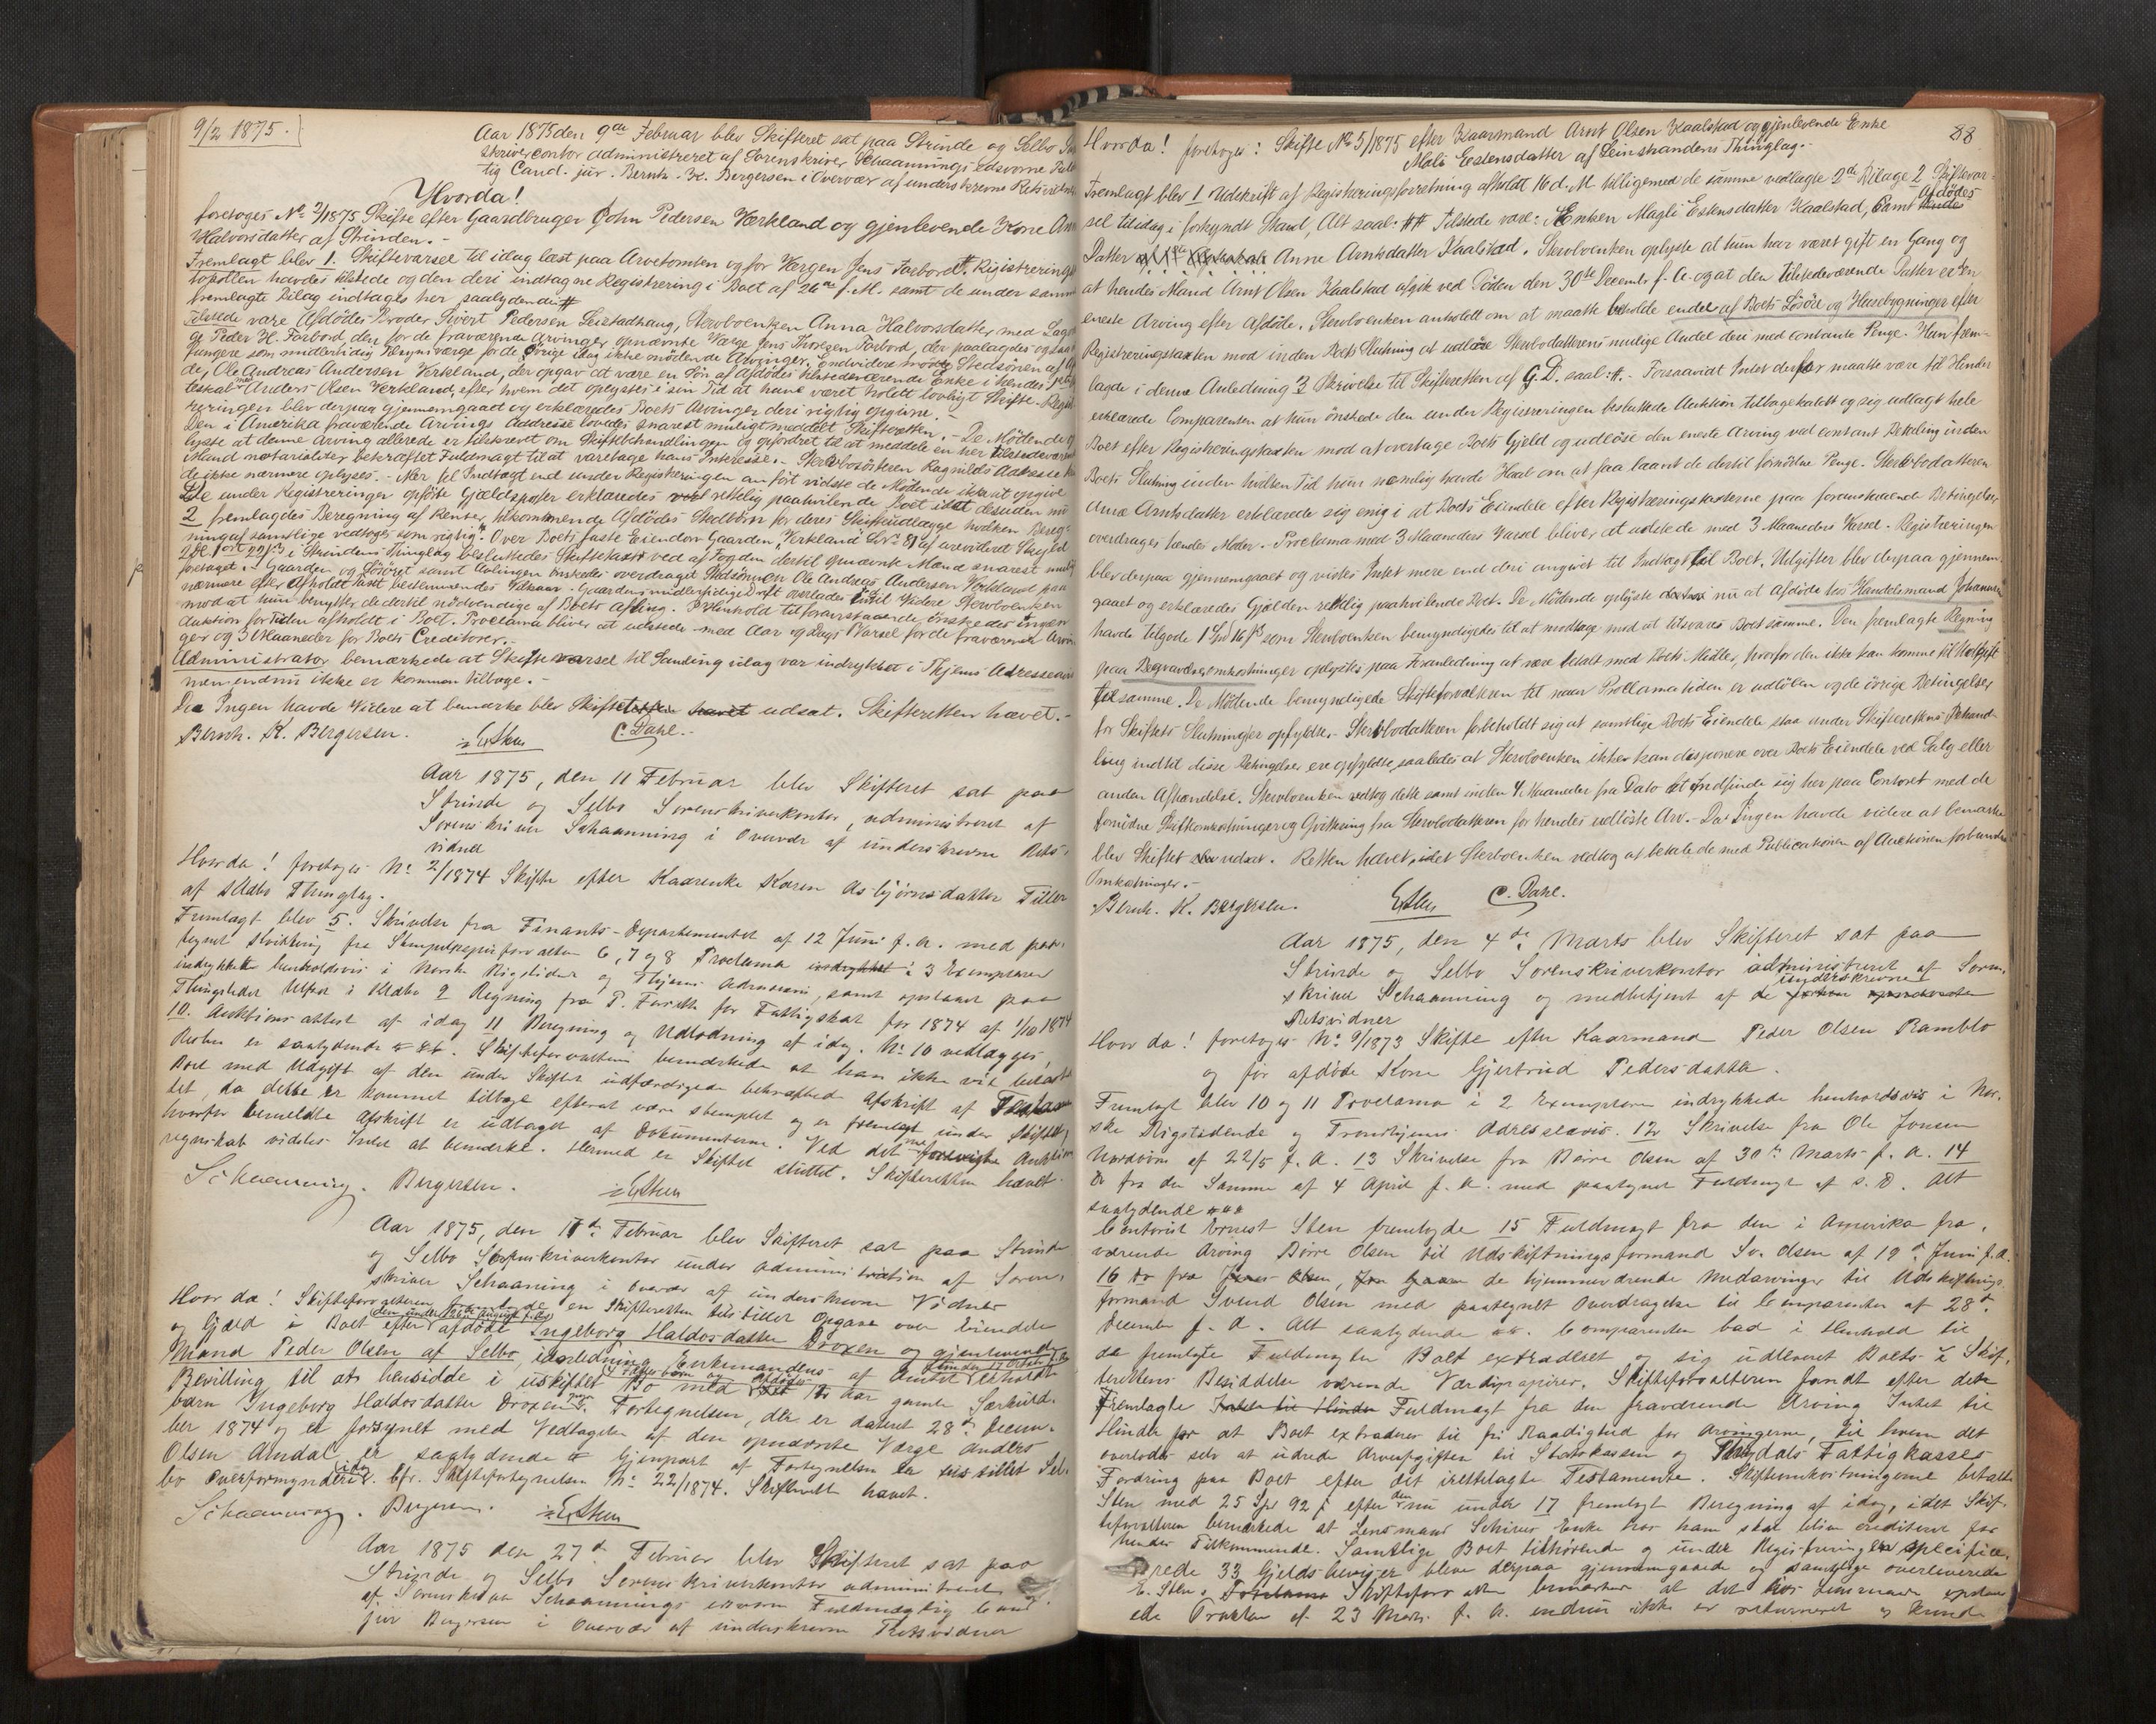 9/2 1875.
Aar 1875 den 9de Februar blev Skifteret sat paa Strinde og Selbo
skrivercontor administreret af Sorenskriver Schaannings edsvorne
tig Cand. jur. Bernh. K. Bergersen i Overvær af underskrevne Retsvidner
Hvorda!
foretoges No 2/1875 Skifte efter Gaardbruger John Pedersen Værkland og gjenlevende Kone
Halvorsdatter af Strinden. -
Fremlagt blev 1. Skiftevarsel til idag læst paa Arvetomten og for Værgen Jens Forbord. Registrerings
tokollen havdes tilstede og den deri indtagne Registrering i Boet af 26de f. M. samt de under samme
fremlagte Bilag indtages her saalydende #
Tilstede vare Afdødes Broder Sivert Pedersen Leistadhaug, Sterboenken Anna Halvorsdatter med
ge Peder H. Forbord, den for de fraværende Arvinger opnævnte Værge Jens Thoresen Forbord, der paalagdes ogsaa
fungere som midlertidig Kurv for de øvrige idag ikke mødende Arvinger. Endvidere mødte Stedsønnen af
de, Ole Andreas Andersen Verkland, der opgav at være en Søn af Afdødes tilstedeværende Enke i hendes
teskab med Anders Olsen Verkland, efter hvem det oplystes i sin Tid at have været holdt lovligt Skifte. -
reringen blev derpaa gjennemgaaet og erklæredes Boets Arvinger deri rigtig opgivne. -
Den i Amerika fraværende Arvings Addresse lovedes snarest muligt meddelt Skifteretten. - De Mødende
lyste at denne Arving allerede er tilskrevet om Skiftebehandlingen og opfordret til at meddele en her tilstedeværende
Mand notarialiter bekræftet Fuldmagt til at varetage hans Interesse. - Sterbosøsteren Ragnilds Adresse
de ikke nærmere oplyses. - Mer til Indtægt end under Registreringen anført vidste de Mødende ikke at opgive
De under Registreringen opførte Gjældsposter erklæredes rettelig paahvilende Boet idet desuden nu
2 fremlagdes Beregning af Renter, tilkommende Afdødes Stedbørn for deres Skifteudlægge hvilken Bereg-
ning af samtlige vedtoges som rigtig. Over Boets faste Eiendom Gaarden "Verkland" Lr No 81 af urevideret Skyld
i Strindens Thinglag besluttedes Skiftetaxt ved af Fogden dertil opnævnte Mænd snarest mulig
foretaget. Gaarden og Løsøret samt Avlingen ønskedes overdraget Stedsønnen Ole Andreas Andersen Verkland paa
nærmere efter afholdt Taxt bestemmendes Vilkaar. Gaardens midlertidige Drift overlades indtil Videre Sterboenken
mod at hun benytter de dertil nødvendige af Boets Avling. I Henhold til foranstaaende ønskedes ingen
Auktion for Tiden afholdt i Boet. Proclama bliver at udstede med Aar og Dags Varsel for de fraværende
ger og 3 Maaneder for Boets Creditorer. -
Administrator bemærkede at Skiftevarsel til Samling idag var indrykket i Thjems Adresseavis
men endnu ikke er kommen tilbage. -
Da Ingen havde Videre at bemærke blev Skiftet udsat. Skifteretten hævet. -
Bernh. K. Bergersen. ESten C. Dahl. -
Aar 1875, den 11 Februar blev Skifteret sat paa
Strinde og Selbo Sorenskriverkontor, administreret af
Sorenskriver Schaanning i Overvær af underskrevne Rets-
vidner
Hvorda! foretoges No 2/1874 Skifte efter Kaarenke Karen Asbjørnsdatter Tiller
af Klæbo Thinglag.
Fremlagt blev 5. Skrivelse fra Finants-Departementet af 12 Juni f. A. med paa-
tegnet Kvittering fra Stempelpapirforvalteren 6, 7 og 8 Proclama i 3 Exemplarer
indrykkede henholdsvis i Norske Rigstidende og Thjems Adresseavis, samt opslaaet paa
Thingstedet Ulstad i Klæbo 9 Regning fra P. Forseth for Fattigskat for 1874 af 1/10 1874
10. Auktionsattest af idag 11 Beregning og Udlodning af idag. No 10 vedlægges,
Resten er saalydende # 86. Skifteforvalteren bemærkede at han ikke vil belaste
Boet med Udgift af den under Skiftet udfærdigede bekræftede Afskrift af
tet, da dette er kommet tilbage efterat være stemplet og er fremlagt under Skiftet,
hvorfor bemeldte Afskrift er udtaget af Dokumenterne. Ved det Auktions
regnskab vidstes Intet at bemærke. Hermed er Skiftet sluttet. Skifteretten hævet.
Schaanning. Bergersen. ESten
Aar 1875, den 17de Februar blev Skifteret sat paa Strinde
og Selbo Sorenskriverkontor under Administration af Soren-
skriver Schaanning i Overvær af underskrevne Vidner
Hvor da! Skifteforvalteren bemærkede en Skifteretten tilstillet Opgave over Eiendele
og Gjæld i Boet efter afdøde Ingeborg Haldorsdatter Droxen og gjenlevende
Mand Peder Olsen af Selbo, i Anledning Enkemandens af Amtet under 17 Octbr f. A. erholdte
Bevilling til at hensidde i uskiftet Bo med Aar gamle Særkuld-
barn Ingeborg Haldorsdatter Droxen. Fortegnelsen, der er dateret 28de Decem-
ber 1874 og er forsynet med Vedtagelse af den opnævnte Værge Anders
Olsen Amdal, er saalydende # Gjenpart af Fortegnelsen er tilstillet Sel-
bo Overformynderi idag. Cfr. Skiftefortegnelsen No 22/1874. Skifteretten hævet.
Schaanning. Bergersen. ESten
Aar 1875 den 27de Februar blev Skifteret sat paa
Strinde og Selbo Sorenskriverkontor administreret
af Sorenskriver Schaannings edsvorne Fuldmægtig Cand.
jur Bergersen i Overvær af underskrevne Retsvidner
88
Hvorda! foretoges: Skifte No 5/1875 efter Kaarmand Arnt Olsen Kaalstad og gjenlevende Enke
Mali Estensdatter af Leinstrandens Thinglag. -
Fremlagt blev 1 Udskrift af Registreringsforretning afholdt 16 d. M. tilligemed de samme vedlagte 2de Bilage 2 Skiftevar-
sel til idag i forkyndt Stand, Alt saal: ## Tilstede vare: Enken Magli Estensdatter Kaalstad, samt Afdødes
Datter Anne Arntsdatter Kaalstad. Sterboenken oplyste at hun har været gift en Gang og
at hendes Mand Arnt Olsen Kaalstad afgik ved Døden den 30te Decembr f. A. og at den tilstedeværende Datter er den
eneste Arving efter Afdøde. Sterboenken anholdt om at maatte beholde endel af Boets Løsøre og Husebygninger efter
Registreringstaxten mod inden Boets Slutning at udløse Sterbodatterens mulige Andel deri med contante Penge. Hun frem-
lagde i denne Anledning 3 Skrivelse til Skifteretten af G. D. saal: #. - Forsaavidt Intet derfor maatte være til Hinder
erklærede Comparenten at hun ønskede den under Registreringen besluttede Auktion tilbagekaldt og sig udlagt hele
Boet efter Registreringstaxten mod at overtage Boets Gjæld og udløse den eneste Arving ved contant Betaling inden
Boets Slutning inden hvilken Tid hun nemlig havde Haab om at faa laant de dertil fornødne Penge. Sterbodatteren
Anne Arntsdatter erklærede sig enig i at Boets Eiendele efter Registreringstaxterne paa foranstaaende Betingelser
overdrages hendes Moder. - Proclama med 3 Maaneders Varsel bliver at udstede med 3 Maaneders Varsel. - Registreringen
blev derpaa gjennemgaaet og vidstes Intet mere end deri angivet til Indtægt til Boet. Udgifter blev derpaa gjennem-
gaaet og erklæredes Gjælden rettelig paahvilende Boet. De Mødende oplyste nu at Afdøde hos Handelsmand Johannsen
havde tilgode 1 Spd 16 s som Sterboenken bemyndigedes til at modtage mod at tilsvare Boet samme. Den fremlagte Regning
paa Begravelsesomkostninger oplystes paa Foranledning at være betalt med Boets Midler, hvorfor den ikke kan komme til Udgift
til samme. De Mødende bemyndigede Skifteforvalteren til naar Proclamatiden er udløben og de øvrige Betingelser
for Skiftets Slutning er opfyldte. - Sterbodatteren forbeholdt sig at samtlige Boets Eiendele staa under Skifterettens Behand-
ling indtil disse Betingelser ere opfyldte, saaledes at Sterboenken ikke kan disponere over Boets Eiendele ved Salg eller
anden Afhændelse. Sterboenken vedtog dette samt inden 4 Maaneder fra Dato at indfinde sig her paa Contoret med de
fornødne Skifteomkostninger og Qvittering fra Sterbodatteren for hendes udløste Arv. - Da Ingen havde videre at bemærke
blev Skiftet udsat. Retten hævet, idet Sterboenken vedtog at betale de med Publicationen af Auctionen forbundne
Omkostninger. -
Bernh. K. Bergersen. ESten C. Dahl.
Aar 1875, den 4de Marts blev Skifteret sat paa
Strinde og Selbo Sorenskriverkontor administreret af Soren-
skriver Schaanning og medbetjent af de underskrevne
Retsvidner
Hvor da! foretoges No 9/1873 Skifte efter Kaarmand Peder Olsen Ramblo
og før afdøde Kone Gjertrud Pedersdatter.
Fremlagt blev 10 og 11 Proclama i 2 Exemplarer indrykkede henholdsvis i Nor-
ske Rigstidende og Trondhjems Adresseavis. 12 Skrivelse fra Ole Jonsen
Nordvom af 22/5 f. A. 13 Skrivelse fra Børre Olsen af 30te Marts f. A. 14
Do fra den Samme af 4 April f. A. med paategnet Fuldmagt af s. D. Alt
saalydende ###
Contorist Ernest Sten fremlagde 15 Fuldmagt fra den i Amerika fra-
værende Arving Børre Olsen til Udskiftningsformand Sv. Olsen af 19de Juni f. A.
16 Do fra de hjemmeværende Medarvinger til Udskiftnings-
formand Svend Olsen med paategnet Overdragelse til Comparenten af 28de
December f. A. Alt saalydende ##. Comparenten bad i Henhold til
de fremlagte Fuldmagter Boet extraderet og sig udleveret Boets i Skif-
terettens Besiddelse værende Værdipapirer. Skifteforvalteren fandt efter den
fremlagte Fuldmagt fra den fraværende Arving Intet til
Hinder for at Boet extraderes til fri Raadighed for Arvingerne, til hvem det
overlodes selv at udrede Arveafgiften til Statskassen og Tydals Fattigkasses
Fordring paa Boet efter det irettelagte Testamente. Skifteomkostningerne betalte
Sten med 25 Spd 92 s efter den nu under 17 fremlagt Beregning af idag, idet Skif-
teforvalteren bemærkede at Lensmand Schives Enke hos ham skal blive krediteret for
hendes Tilkommende. Samtlige Boet tilhørende og under Registreringen specifice-
rede 33 Gjeldsbeviser bleve derpaa gjennemgaaede og samtlige overleverede
E. Sten. Skifteforvalteren bemærker at det hos Lensmanden
ede Proclam af 23 Marts f. A. endnu ikke er returneret og kunde